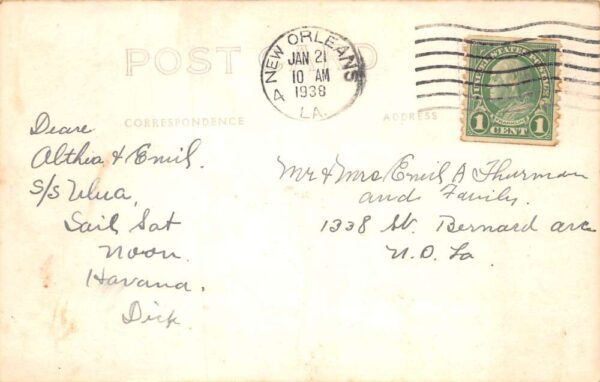 POST CARD
4 NEW ORLEANS
JAN 21
10 AM
1938
LA.
UNITED STATES POSTAGE
FRANKLIN
1 CENT 1
CORRESPONDENCE
ADDRESS
Deare
Althea & Emil.
S/S Ulua,
Sail Sat
Noon.
Havana.
Dick
Mr & Mrs Emil A Thurman
and Family.
1338 St. Bernard ave
N.O. La